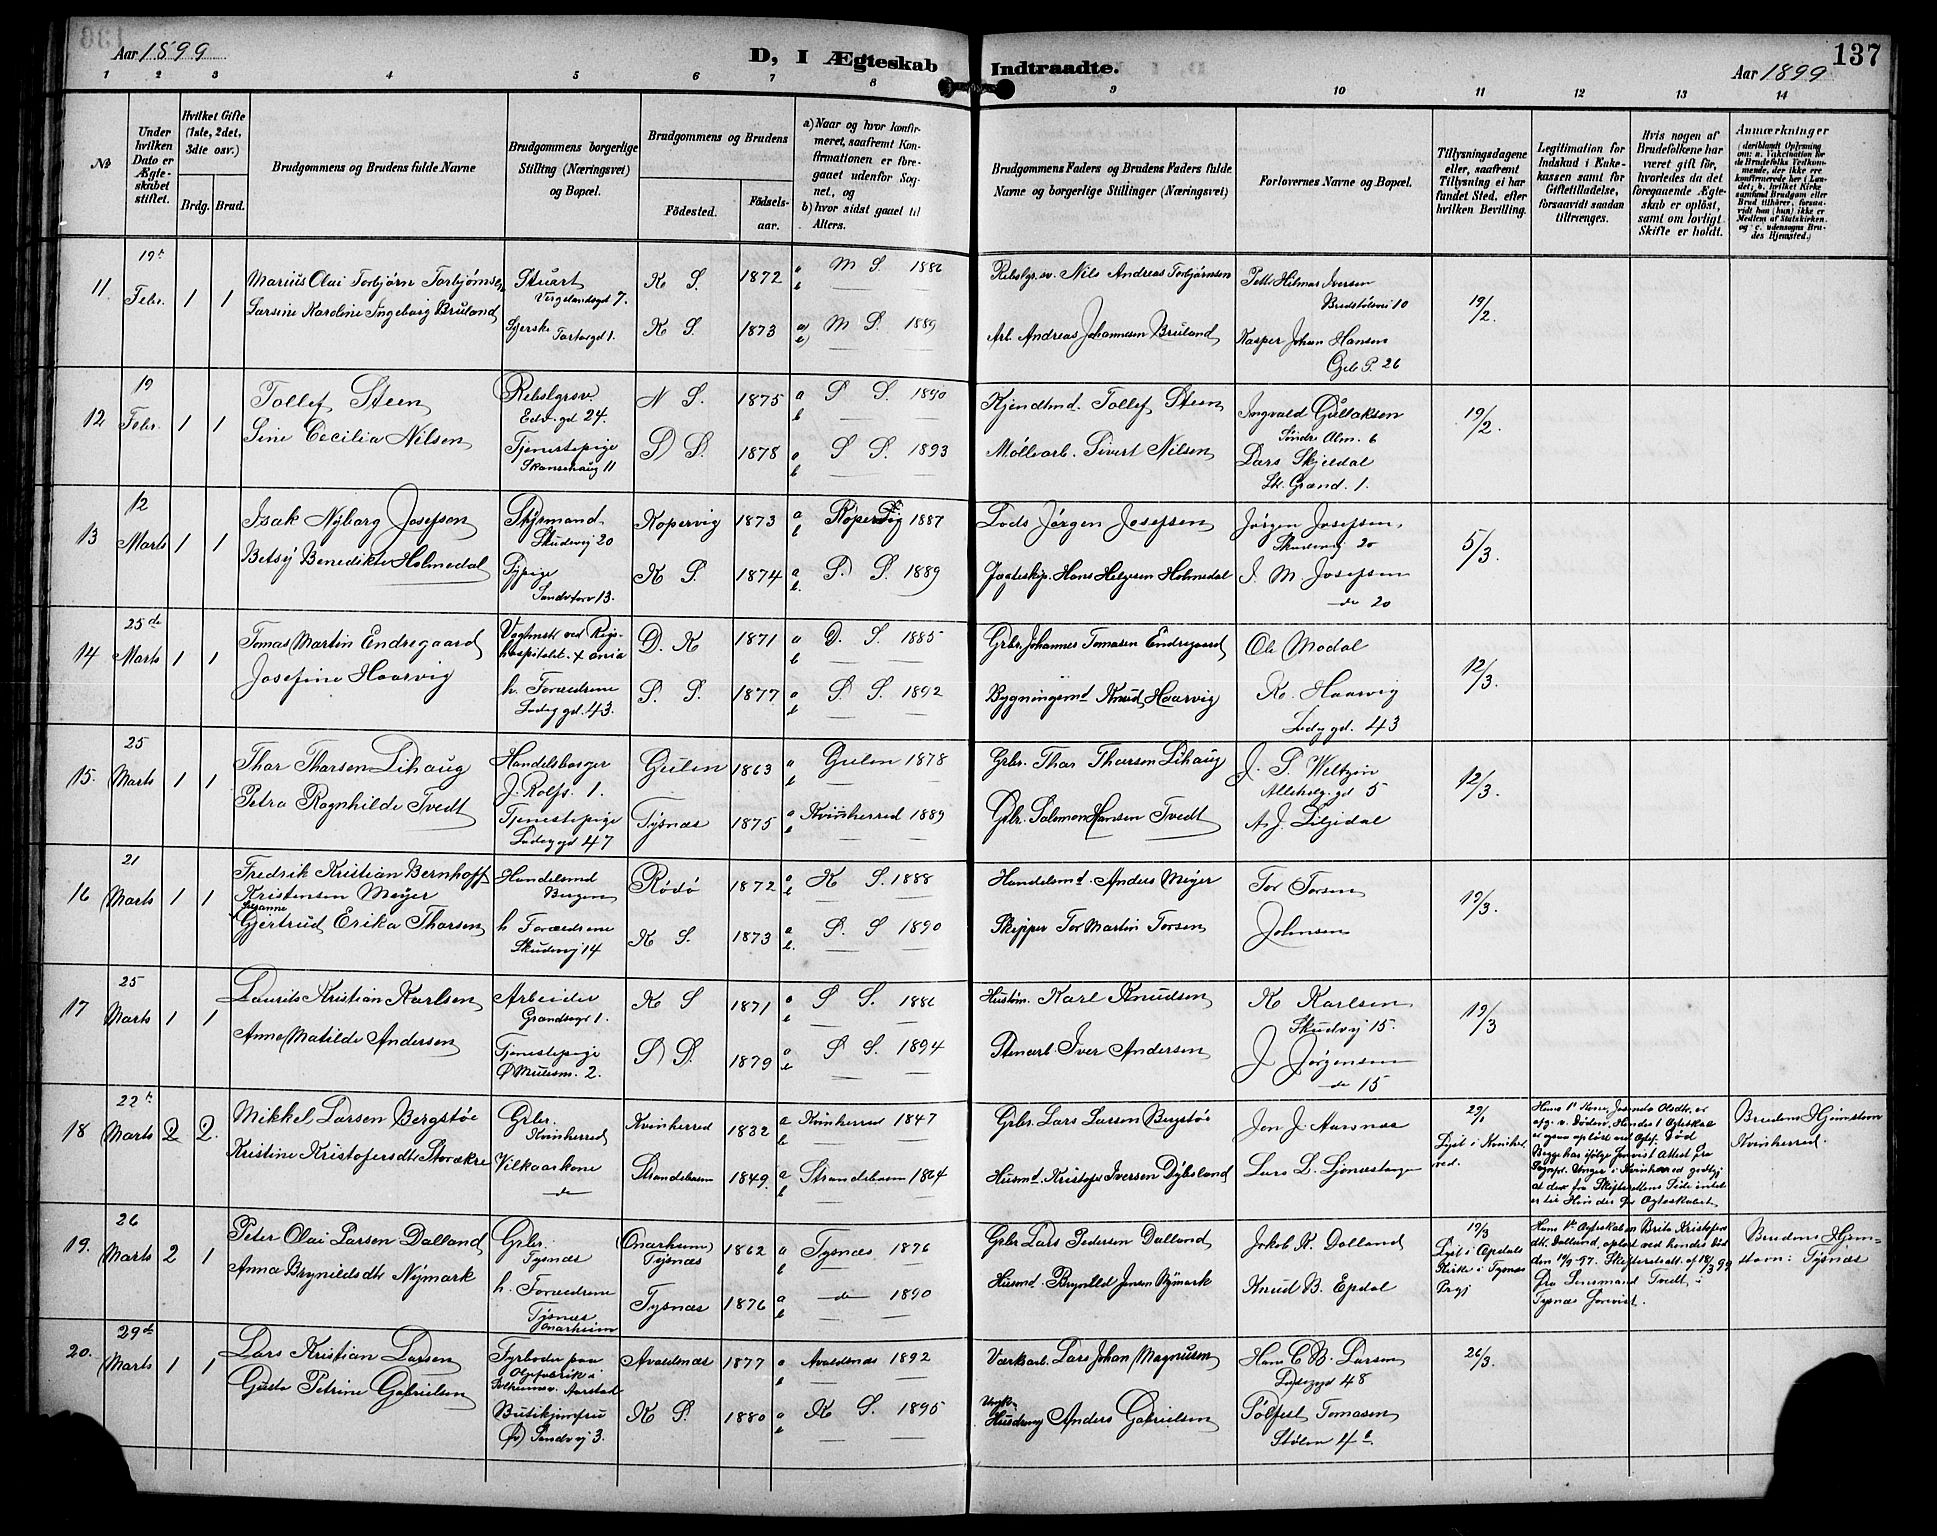 Aar 1899
D, I Ægteskab Indtraadte.
137
Aar 1899
1 2 3 4 5 6 7 8 9 10 11 12 13 14
No
Under hvilken Dato er Ægteskabet stiftet.
Hvilket Gifte (1ste, 2det, 3die osv.)
Brdg. Brud.
Brudgommens og Brudens fulde Navne
Brudgommens borgerlige Stilling (Næringsvei) og Bopæl.
Brudgommens og Brudens
Fødested.
Fødselsaar.
a) Naar og hvor konfirmeret, saafremt Konfirmationen er foregaaet udenfor Sognet, og
b) hvor sidst gaaet til Alters.
Brudgommens Faders og Brudens Faders fulde Navne og borgerlige Stillinger (Næringsvei)
Forlovernes Navne og Bopæl.
Tillysningsdagene eller, saafremt Tillysning ei har fundet Sted, efter hvilken Bevilling.
Legitimation for Indskud i Enkekassen samt for Giftetilladelse, forsaavidt saadan tiltrænges.
Hvis nogen af Brudefolkene har været gift før, hvorledes da det foregaaende Ægteskab er opløst, samt om lovligt Skifte er holdt.
Anmærkninger (deriblandt Oplysning om: a. Vakcination for de Brudefolks Vedkommende, der ikke ere konfirmerede her i Landet; b. hvilket Kirkesamfund Brudgom eller Brud tilhører, forsaavidt han (hun) ikke er Medlem af Statskirken, og c. udensogns Brudes Hjemsted.)
11 19de Febr. 1 1
Marius Olai Torbjørn Torbjørnsen Stuart Vergelandsgd 7. K S. 1872 a M S. 1886 Rebslgr.sv. Nils Andreas Torbjørnsen Hilmar Iversen Bredstølsvei 10 19/2.
Larsine Karoline Ingeborg Bruland Syerske K S. 1873 a) M S. 1889 Arb. Andreas Johannesen Bruland Kasper Johan Hansen P. 26
12 19 Febr. 1 1
Tollef Steen Rebslgrsv. 24. N S. 1875 a S S. 1890 Kjendtmd. Tollef Steen Ingvald Gullaksen Søndre Alm. 6 19/2.
Sine Cecilia Nilsen Tjenestepige Skansehaug 11 D S. 1878 a S S. 1893 Møllearb. Sivert Nilsen Lars Skjeldal 1.
13 12 Marts 1 1
Isak Nyborg Josefson Styrmand Skudevij 20 Kopervig 1873 a Kopervig 1887 Lods Jørgen Josefsen Jørgen Josefsen, Skudevij 20 5/3.
Betsy Benedikte Holmedal Typige Sandstorv 13. K S. 1874 a D. S. 1889 Hans Helgesen Holmedal J. M Josefsen do 20
14 25de Marts 1 1
Tomas Martin Endregaard Vagtmstr ved Rigshospitalet. X ania D. K 1871 a D. S. 1885 Grbr. Johannes Tomasen Endregaard Ole Modal 12/3.
Josefine Haarvig h. Forældrene Ladeggd. 43. S. S. 1877 a S S. 1892 Bygningsmd Knud Haarvig K. Haarvig Ladeggd. 43
15. 25 Marts 1 1
Thor Thorsen Lihaug Handelsborger J. Rolfs. 1. Gulen 1863 a Gulen 1878 Grbr. Thor Thorsen Lihaug J. S. Weltzin Allehelg. gd 5 12/3.
Petra Ragnhilde Tvedt Tjenestepige Ladeggd 47 Tysnæs 1875 a Kvinherred 1889 Grbr. Salomon Hansen Tvedt A. J. Liljedal
16 21 Marts 1 1
Fredrik Kristian Bernhoff Kristensen Meyer Handelsmd Bergen Rödö 1872 a K S. 1888 Handelsmd. Anders Meyer Tor Torsen 19/3.
Susanne Gjertrud Erika Thorsen h Forældrene Skudevij 14 K S. 1873 a S. S 1890 Skipper Tor Martin Torsen Johnsen
17 25 Marts 1 1
Laurits Kristian Karlsen Arbeider 1. K S 1871 a S S. 1886 Karl Knudsen K Karlsen Skudvij 15. 19/3
Anna Matilde Andersen Tjenestepige Ø Mulesm. 2. D S. 1879 a S S. 1894 Stenarb. Iver Andersen J Jørgensen do 15
18 22de Marts 2 2.
Mikkel Larsen Bergstøe Grbr. Kvinherred Kvinherred 1832 a Kvinherred 1847 Grbr. Lars Larsen Bergstøe Jon J. Aarsnæs Lyst i Kvinherred.
Kristine Kristofersdtr Storækre Vilkaarkone do Strandebarm 1849. a Strandebarm 1864 Husmd. Kristofer Iversen Dybsland Lars L.
Brudens Hjemstavn Kvinherred.
19. 26 Marts 2 1
Peter Olai Larsen Dalland Grbr. Tysnæs (Onarheim) Tysnæs 1862 a Tysnæs 1876 Grbr Lars Pedersen Dalland Jakob K. Dalland 19/3 Lyst i Opdals Kirke i Tysnæs Prgj
Hans 1ste Ægteskab m Brita Kristofersdtr. Dalland, opløst ved hendes Død den 14/9-97. Skifteretsatt. af 18/3 99 fra Lensmand Tvedt, i Tysnæs forevist.
Brudens Hjemstavn: Tysnæs
Anna Brynildsdtr Nymark h. Forældrene Tysnæs Onarheim Tysnæs 1876 a do 1890 Husmd Brynild Jensen Nymark Knud B. Epdal
20. 29de Marts 1 1
Lars Kristian Larsen Fyrbøder paa Oljefabrik i Solheimsv. Aarstad Avaldsnæs 1877 a Avaldsnæs 1892 Værksarb. Lars Johan Magnusen Hans C B. Larsen Ladeggd 48 26/3.
Gusta Petrine Gabrielsen Butikjomfru Sandvij 3. K S. 1880 a K S. 1895 Anders Gabrielsen Sølfest Tomasen Stølen 4